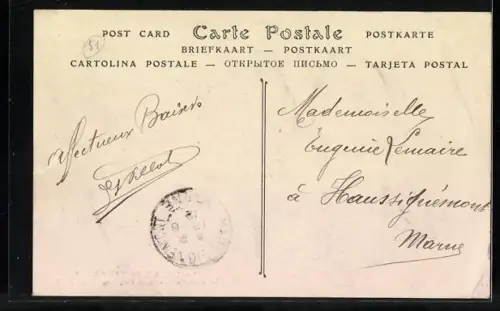 POST CARD Carte Postale POSTKARTE
BRIEFKAART — POSTKAART
CARTOLINA POSTALE — ОТКРЫТОЕ ПИСЬМО — TARJETA POSTAL
Affectueux Baisers
Mademoiselle
Eugénie Lemaire
à Haussignémont
Marne